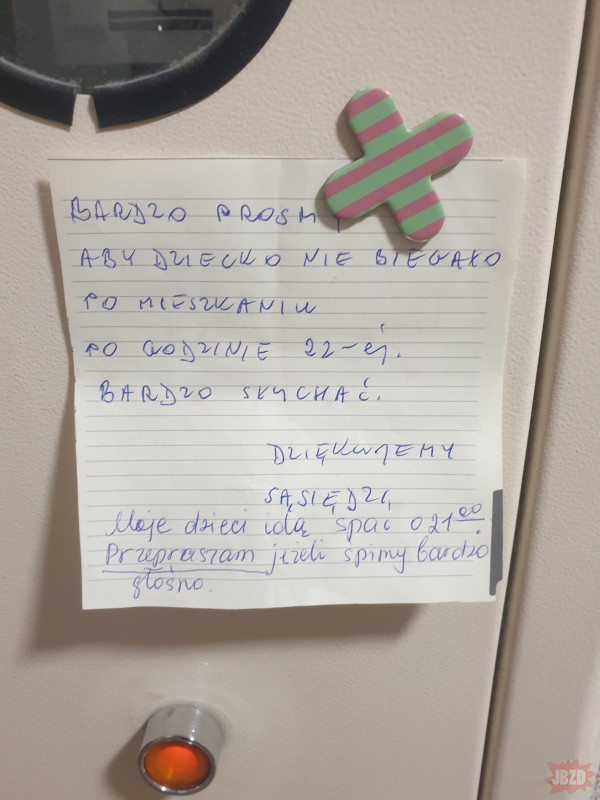 BARDZO PROSMY
ABY DZIECKO NIE BIEGAŁO
PO MIESZKANIU
PO GODZINIE 22-ej.
BARDZO SŁYCHAĆ.
DZIĘKUJEMY
SĄSIĘDZI
Moje dzieci idą spać o 21⁰⁰.
Przepraszam jeżeli śpimy bardzo
głośno.
JBZD